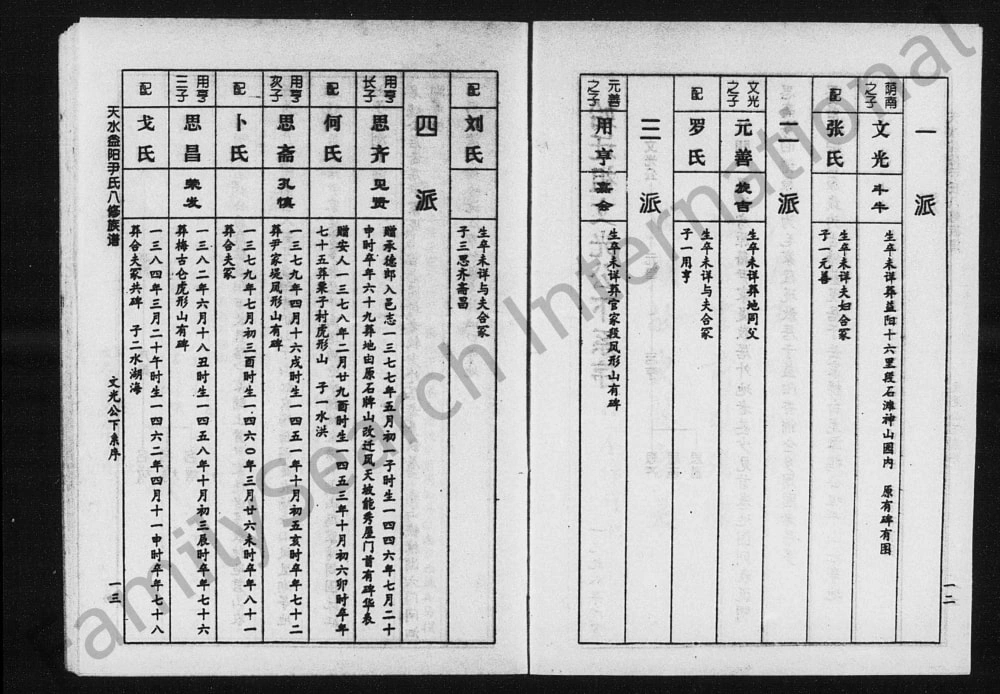 一派
荫南之子
文光
斗牛
生卒未详葬益阳十六里段石滩神山图内 原有碑有图
配
张氏
生卒未详夫妇合冢
子一元善
二派
文光之子
元善
族吉
生卒未详葬地同父
配
罗氏
生卒未详与夫合冢
子一用亨
三派
元善之子
用亨
嘉会
生卒未详葬官家段凤形山有碑
一二
配
刘氏
生卒未详与夫合冢
子三思齐斋昌
四派
用亨长子
思齐
见贤
赠承德郎入邑志一三七七年五月初一子时生一四四六年七月二十
申时卒年六十九葬地由原石牌山改迁凤天坡能秀屋门首有碑华表
配
何氏
赠安人一三七八年二月廿九酉时生一四五三年十月初六卯时卒年
七十五葬栗子村虎形山 子一水洪
用亨次子
思斋
孔慎
一三七九年四月十六戌时生一四五一年十月初五亥时卒年七十二
葬尹家堤凤形山有碑
配
卜氏
一三七九年七月初三酉时生一四六〇年三月廿六未时卒年八十一
葬合夫冢
用亨三子
思昌
荣发
一三八二年六月十八丑时生一四五八年十月初三辰时卒年七十六
葬梅古仑虎形山有碑
配
戈氏
一三八四年三月二十午时生一四六二年四月十一申时卒年七十八
葬合夫冢共碑 子二水湖海
天水益阳尹氏八修族谱
文光公下系序
一三
FamilySearch International